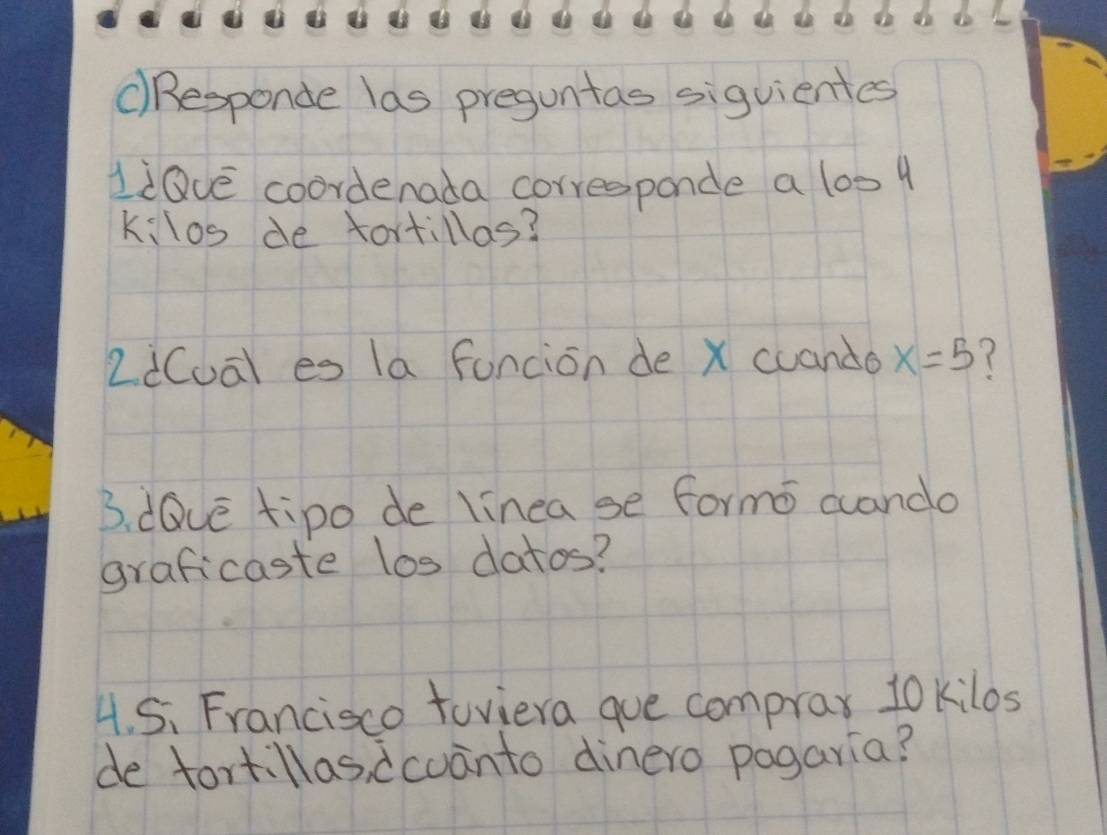 c) Responde las preguntas siguientes
1 ¿Qué coordenada corresponde a los 4
Kilos de tortillas?
2. ¿Cuál es la función de x cuando x=5?
3. ¿Qué tipo de línea se formó cuando
graficaste los datos?
4. Si Francisco tuviera que comprar 10 Kilos
de tortillas, ¿cuánto dinero pagaría?